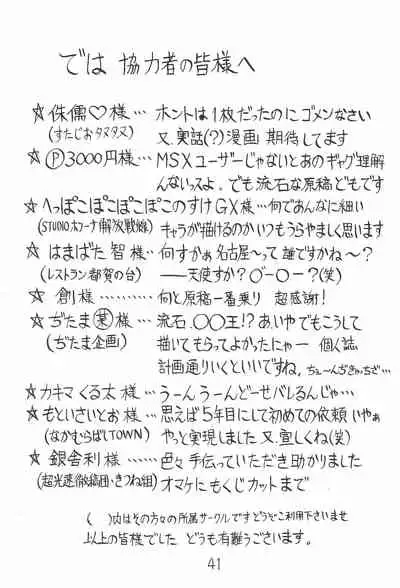 では 協力者の皆様へ
☆ 侏儒♡様… ホントは1枚だったのにゴメンなさい
(すたじおタヌタヌ) 又、実話(?)漫画 期待してます
☆ Ⓟ3000円様… MSXユーザーじゃないとあのギャグ理解
んないっスよ。でも流石な原稿どもです
☆ へっぽこぽこぽこぽこのすけGX様…何であんなに細い
(STUDIOホラーナ解放戦線) キャラが描けるのかいつもうらやましく思います
☆ はまばた 智様… 何すかぁ名古屋〜って誰ですかね〜?
(レストラン都賀の台) ――天使すか? O-O-?(笑)
☆ 創様………… 何と原稿一番乗り 超感謝!
☆ ぢたま㊍様… 流石、○○王!? あ、いやでもこうして
(ぢたま企画) 描いてもらってよかったにゃー 個人誌
計画通りいくといいですね。ちぇーんぢきぃちぎ…
☆ カキマくる太様… うーんうーんどーせバレるんじゃ…
☆ もといさいとお様… 思えば5年目にして初めての依頼 いやぁ
(なかむらばしTOWN) やっと実現しました 又、宣しくね(笑)
☆ 銀舎利様…… 色々手伝っていただき助かりました
(超光速微稿団・きつね組) オマケにもくじカットまで
( )内はその方々の所属サークルですどうぞご利用下さいませ
以上の皆様でした、どうも有難うございます。
41